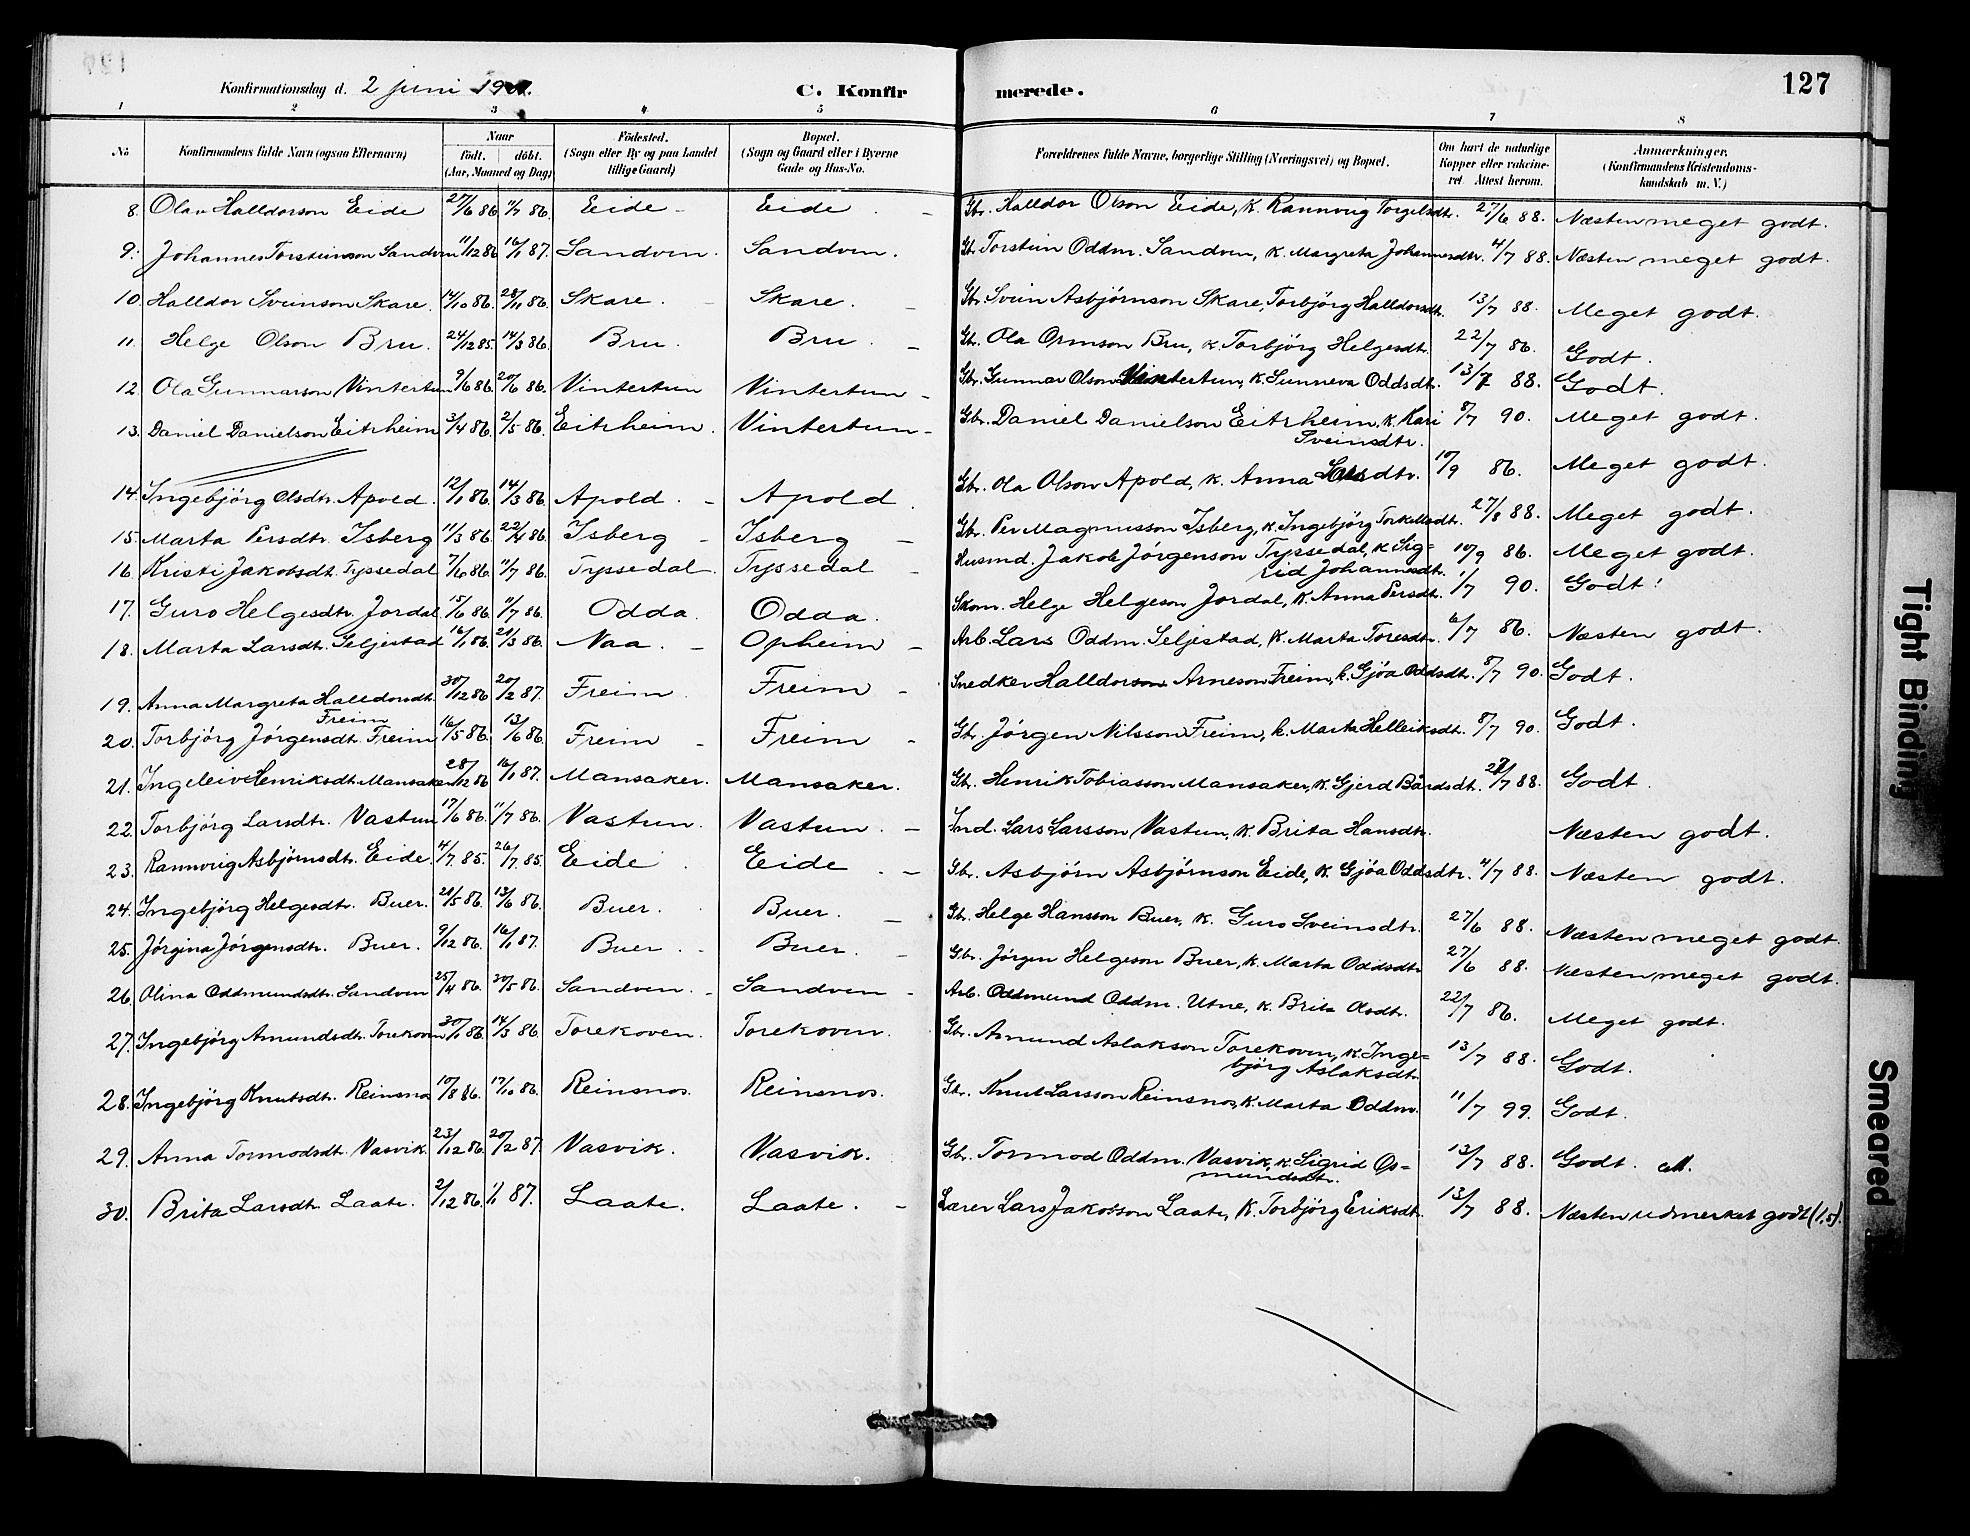 127
Konfirmationsdag d. 2 juni 190
C. Konfirmerede.
1 2 3 4 5 6 7 8
No
Konfirmandens fulde Navn (ogsaa Efternavn)
Naar
født. døbt.
(Aar, Maaned og Dag)
Fødested.
(Sogn eller By og paa Landet
tillige Gaard)
Bopæl.
(Sogn og Gaard eller i Byerne
Gade og Hus-No.
Forældrenes fulde Navne, borgerlige Stilling (Næringsvei) og Bopæl.
Om havt de naturlige
Kopper eller vakcine-
ret. Attest herom.
Anmærkninger,
(Konfirmandens Kristendoms-
kundskab m. V.)
8. Olav Halldorson Eide 27/6 86 11/7 86. Eide - Eide. - Gbr. Halldor Olson Eide, k. Rannveig Torgelsdtr. 27/6 88. Næsten meget godt.
9. Johannes Torsteinson Sandven 11/12 86 16/1 87. Sandven. Sandven. Gb. Torstein Oddm. Sandven, k. Margreta Johannesdtr. 4/7 88. Næsten meget godt.
10. Halldor Sveinson Skare. 14/10 86. 28/11 86. Skare. - Skare. - Gbr. Svein Asbjørnson Skare, Torbjörg Halldorsdt. 13/7 88. Meget godt.
11. Helge Olson Bru. 24/12 85. 14/3 86. Bru. Bru. - Gb. Ola Ormson Bru, k. Torbjörg Helgesdt. 22/7 86. Godt.
12. Ola Gunnarson Vintertun 9/6 86. 20/6 86. Vintertun Vintertun - Gbr. Gunnar Olson Vintertun, k. Sunneva Oddsdt. 13/7 88. Godt.
13. Daniel Danielson Eitrheim 3/4 86. 2/5 86. Eitrheim. Vintertun - Gbr. Daniel Danielson Eitrheim, k. Kari 8/7 90. Meget godt.
Sveinsdtr.
14. Ingebjörg Olsdtr. Apold. 12/1 86. 14/3 86. Apold. - Apold. Gbr. Ola Olson Apold, k. Anna Larsdtr. 10/9 86. Meget godt.
15. Marta Persdtr. Isberg 11/3 86. 22/4 86. Isberg - Isberg - Gbr. Per Magnusson Isberg, k. Ingebjörg Torkellsdt. 27/8 88. Meget godt.
16. Kristi Jakobsdt. Tyssedal 7/6 86. 11/7 86. Tyssedal. Tyssedal - Husmd. Jakob Jörgenson Tyssedal, k. Sig- 10/9 86. Meget godt.
rid Johannesdt.
17. Guro Helgesdtr. Jordal 15/6 86. 11/7 86. Odda. Odda. Skom. Helge Helgeson Jordal, k. Anna Persdt. 1/7 90. Godt.
18. Marta Larsdt. Seljestad 16/1 86. 21/3 86. Naa. - Opheim - Arb. Lars Oddm. Seljestad, k. Marta Toresdt. 6/7 86. Næsten godt.
19. Anna Margreta Halldorsdt. 30/12 86 20/2 87. Freim. Freim - Snedker Halldorson Arneson Freim, k. Gjøa Oddsdt. 8/7 90. Godt.
Freim
20. Torbjörg Jörgensdt. Freim 16/5 86. 13/6 86. Freim - Freim - Gbr. Jörgen Nilsson Freim, k. Marta Helleiksdt. 8/7 90. Godt.
21. Ingeleiv Henriksdt. Mansaker 28/12 86 16/1 87. Mansaker. Mansaker. Gb. Henrik Tobiasson Mansaker, k. Gjerd Bårdsdt. /7 88. Godt.
22. Torbjörg Larsdtr. Vastun 17/6 86. 11/7 86. Vastun. Vastun. - Ind. Lars Larsson Vastun, k. Brita Hansdtr. Næsten godt.
23. Rannveig Asbjørnsdt. Eide. 4/7 85. 26/7 85. Eide Eide. - Gbr. Asbjørn Asbjørnson Eide, k. Gjøa Oddsdtr. 4/7 88. Næsten godt.
24. Ingebjörg Helgesdtr. Buer. 21/5 86. 13/6 86. Buer. Buer. - Gbr. Helge Hansson Buer, k. Guro Sveinsdtr. 27/6 88. Næsten meget godt.
25. Jörgina Jörgensdtr. Buer. 9/12 86. 16/1 87. Buer. - Buer. - Gbr. Jörgen Helgeson Buer, k. Marta Oddsdtr 27/6 88. Næsten meget godt.
26. Olina Oddmundsdt. Sandven 25/4 86. 20/5 86. Sandven. - Sandven - Arb. Oddmund Oddm. Utne, k. Brita Olsdt. 22/7 86. Meget godt.
27. Ingebjörg Amundsdt. Torekoven 30/1 86. 14/3 86. Torekoven. Torekoven. Gbr. Asmund Aslakson Torekoven, k. Inge- 13/7 88. Godt.
björg Aslaksdt.
28. Ingebjörg Knutsdt. Reinsnos 10/8 86. 17/10 86. Reinsnos. Reinsnos. Gbr. Knut Larsson Reinsnos, k. Marta Oddm. 11/7 99. Godt.
29. Anna Tormodsdt. Vasvik. 23/12 86. 20/2 87. Vasvik. Vasvik. Gbr. Tormod Oddm. Vasvik, k. Sigrid Os- 13/7 88. Godt.
mundsdt.
30. Brita Larsdt. Laate. 2/12 86. 1/1 87. Laate. Laate. - Lærer Lars Jakobson Laate, k. Torbjörg Eriksdt. 13/7 88. Næsten udmerket godt (1,5).
Tight Binding
Smeared